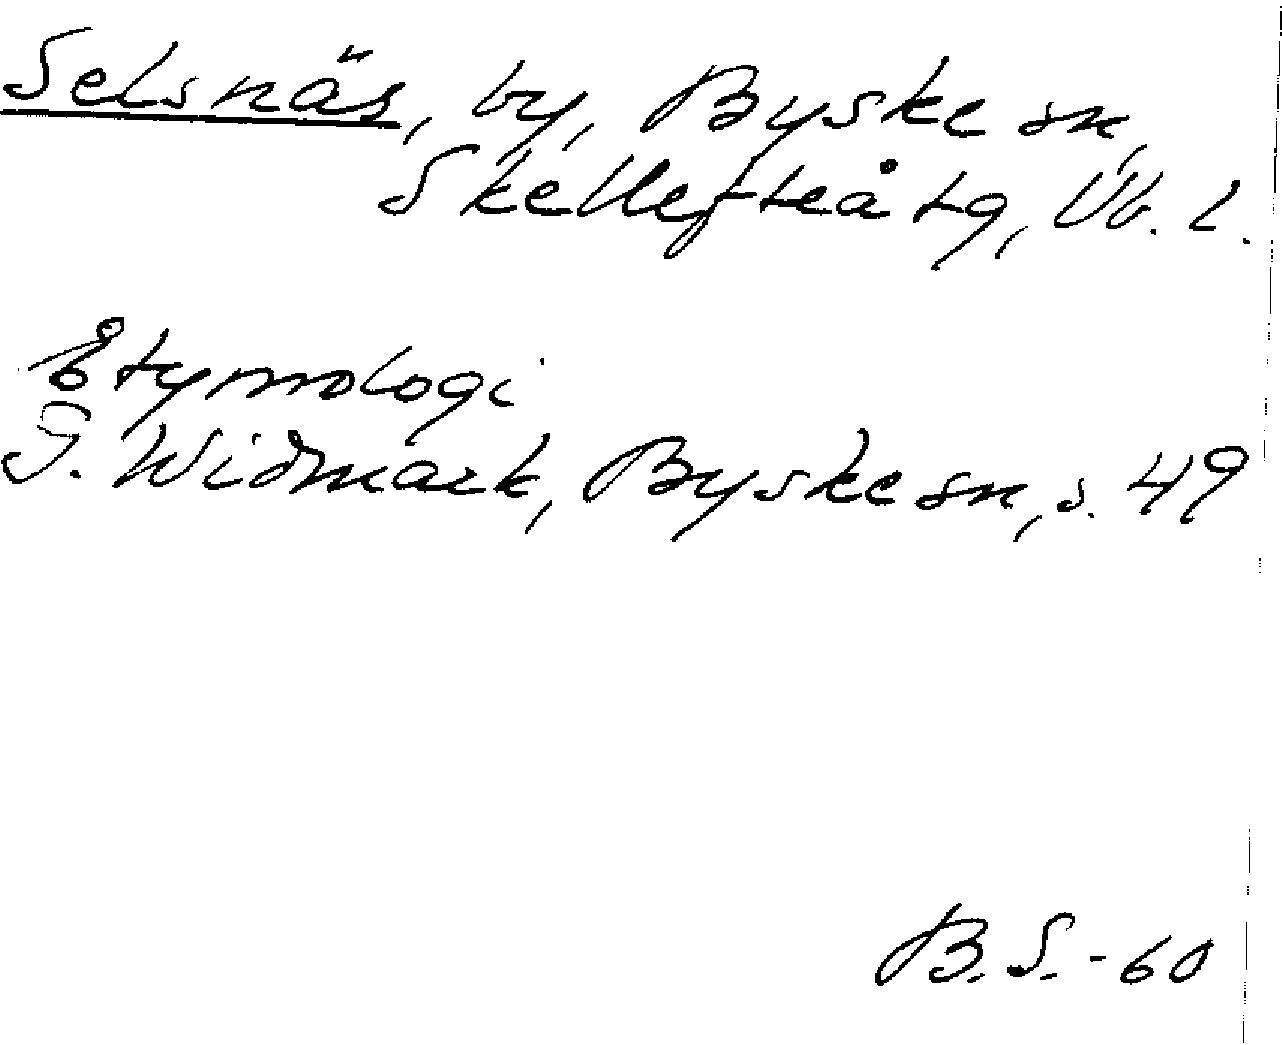 Selsnäs, by, Byske sn,
Skellefteå tg, Vb. l.
Etymologi
G. Widmark, Byske sn, s. 49
B. S. - 60